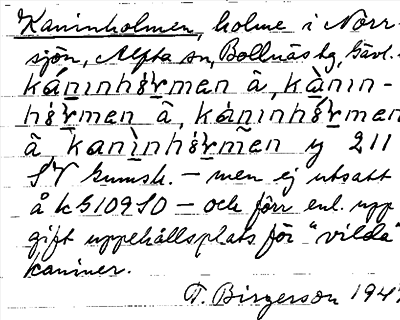 Kaninholmen, holme i Norr-
sjön, Alfta sn, Bollnäs hg, Gävl.
káninhó̤rmen â, kànin-
hó̤rmen â, káninhó̤rmen
â kanìnhó̤rmen̄ y 211
SV kumsk. – men ej utsatt
å k G109 SO – och förr enl. upp
gift uppehållsplats för "vilda"
kaniner.
T. Birgerson 194